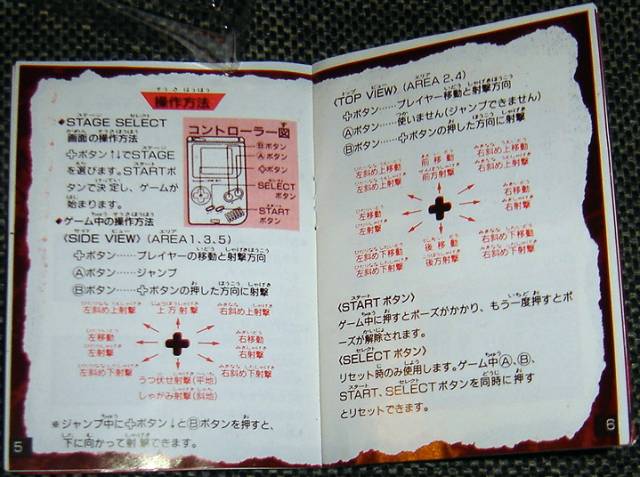 操作方法
◆STAGE SELECT
画面の操作方法
✚ボタン↑↓でSTAGE
を選びます。STARTボ
タンで決定し、ゲームが
始まります。
コントローラー図
Ⓑボタン
Ⓐボタン
✚ボタン
SELECT
ボタン
START
ボタン
◆ゲーム中の操作方法
〈SIDE VIEW〉(AREA1.3.5)
✚ボタン……プレイヤーの移動と射撃方向
Ⓐボタン……ジャンプ
Ⓑボタン……✚ボタンの押した方向に射撃
左斜め上射撃
上方射撃
右斜め上射撃
左移動
左射撃
右移動
右射撃
左斜め下射撃
右斜め下射撃
うつ伏せ射撃(平地)
しゃがみ射撃(斜地)
※ジャンプ中に✚ボタン↓とⒷボタンを押すと、
下に向かって射撃できます。
5
〈TOP VIEW〉(AREA2.4)
✚ボタン……プレイヤー移動と射撃方向
Ⓐボタン……使いません(ジャンプできません)
Ⓑボタン……✚ボタンの押した方向に射撃
左斜め上移動
左斜め上射撃
前移動
前方射撃
右斜め上移動
右斜め上射撃
左移動
左射撃
右移動
右射撃
左斜め下移動
左斜め下射撃
後移動
後方射撃
右斜め下移動
右斜め下射撃
〈STARTボタン〉
ゲーム中に押すとポーズがかかり、もう一度押すとポ
ーズが解除されます。
〈SELECTボタン〉
リセット時のみ使用します。ゲーム中Ⓐ、Ⓑ、
START、SELECTボタンを同時に押す
とリセットできます。
6